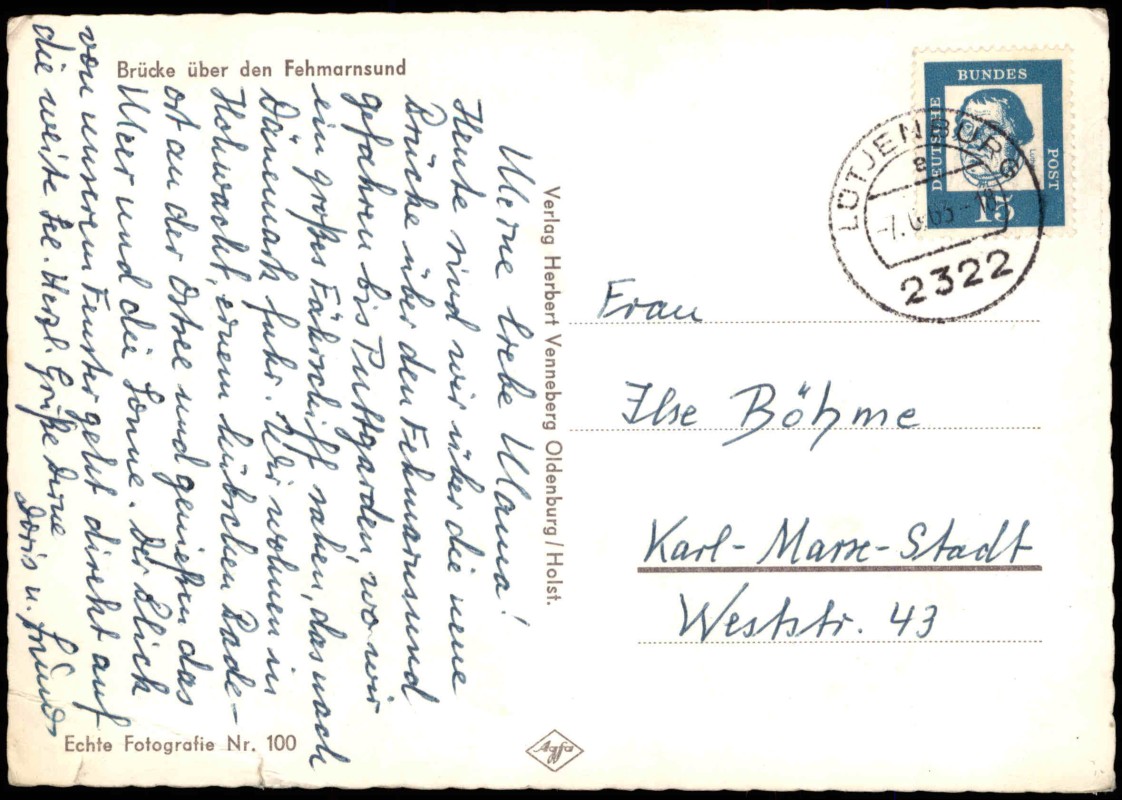 Brücke über den Fehmarnsund
Meine liebe Mama!
Heute sind wir über die neue
Brücke über den Fehmarnsund
gefahren bis Puttgarden, wo wir
ein großes Fährschiff sahen, das nach
Dänemark fuhr. Wir wohnen in
Hohwacht, einem hübschen Bade-
ort an der Ostsee und genießen das
Meer und die Sonne. Der Blick
von unserem Fenster geht direkt auf
die weite See. Herzl. Grüße Deine
Doris u.
Echte Fotografie Nr. 100
Verlag Herbert Venneberg Oldenburg/Holst.
Agfa
DEUTSCHE BUNDES POST
15
LÜTJENBURG
e
63-18
2322
Frau
Ilse Böhme
Karl-Marx-Stadt
Weststr. 43